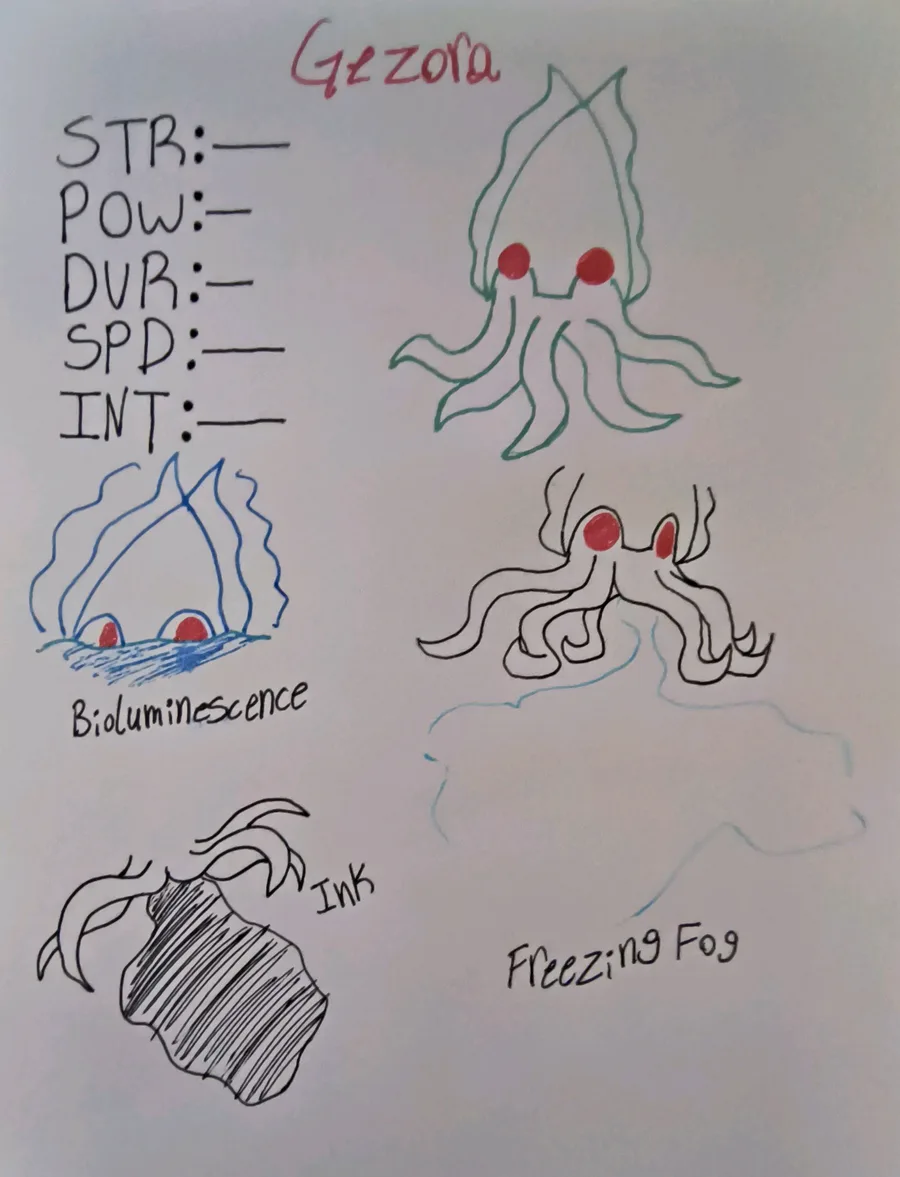 Gezora
STR:—
POW:—
DVR:—
SPD:—
INT:—
Bioluminescence
Ink
Freezing Fog